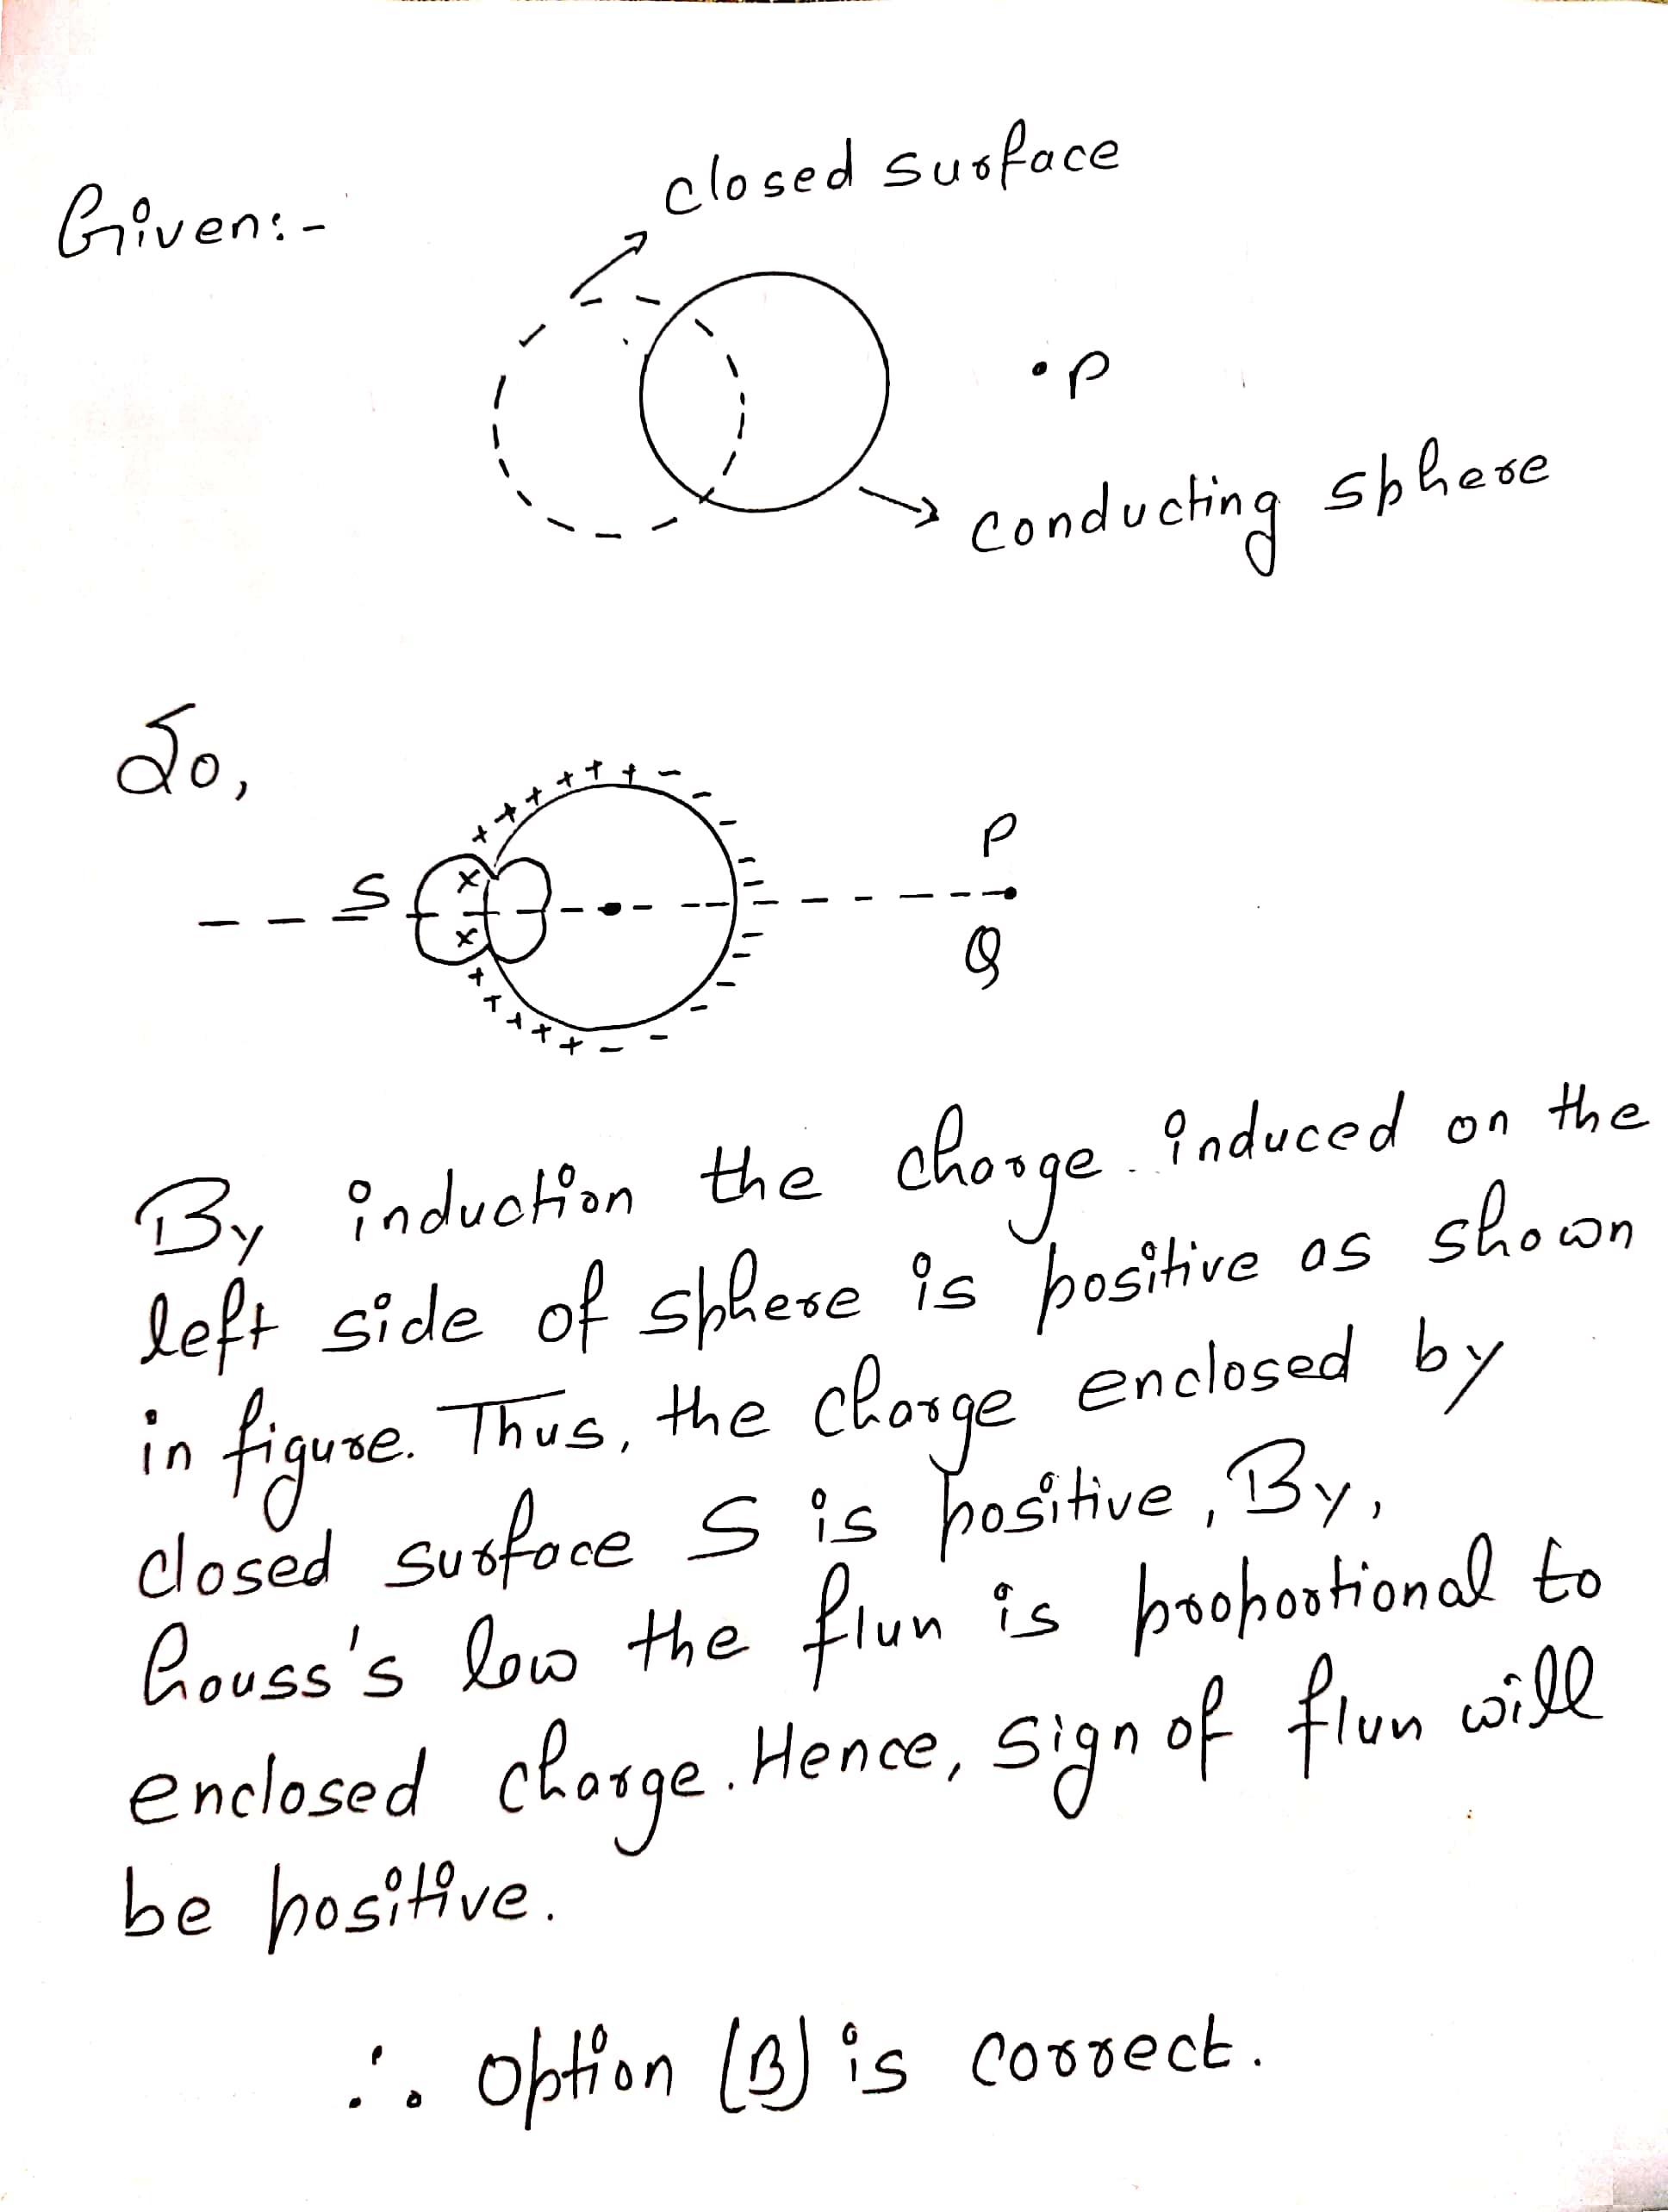 closed surface
Given:-
• P
conducting sphere
So,
+ + + + + + -
P
- - S - - - - - - -
Q
+ + + + + + - -
By induction the charge induced on the
left side of sphere is positive as shown
in figure. Thus, the charge enclosed by
closed surface S is positive, By,
Gauss's law the flun is proportional to
enclosed charge. Hence, sign of flun will
be positive.
∴ Option (B) is correct.